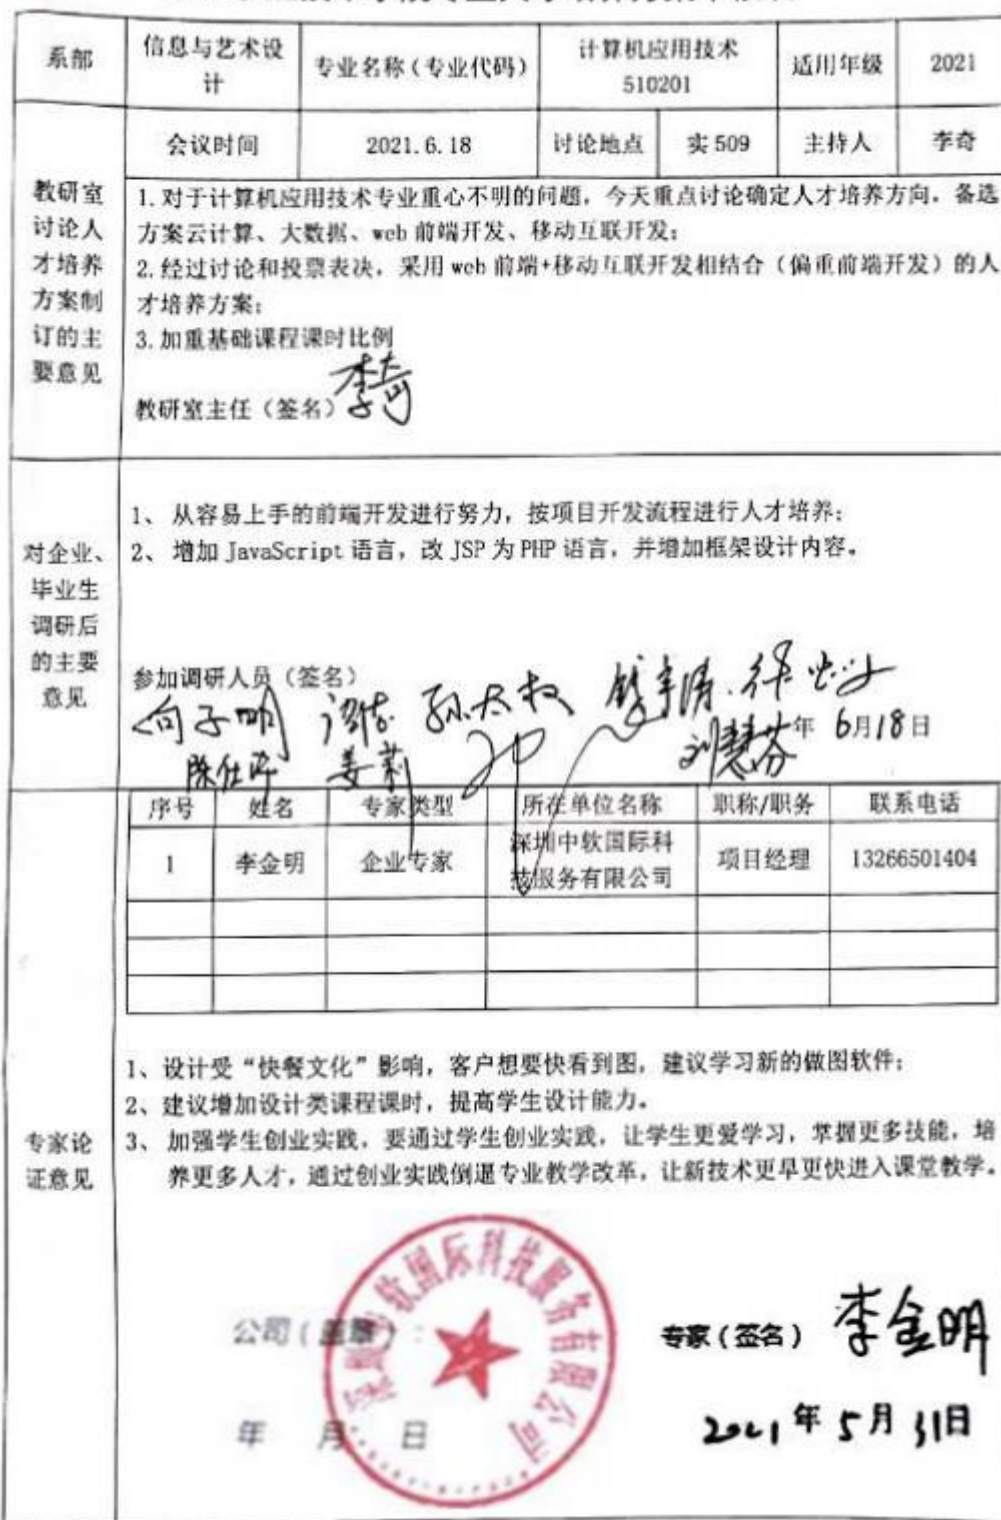 系部 信息与艺术设计 专业名称(专业代码) 计算机应用技术 510201 适用年级 2021
会议时间 2021.6.18 讨论地点 实509 主持人 李奇
教研室讨论人才培养方案制订的主要意见
1.对于计算机应用技术专业重心不明的问题,今天重点讨论确定人才培养方向,备选
方案云计算、大数据、web前端开发、移动互联开发;
2.经过讨论和投票表决,采用web前端+移动互联开发相结合(偏重前端开发)的人
才培养方案;
3.加重基础课程课时比例
教研室主任(签名)李奇
对企业、毕业生调研后的主要意见
1、 从容易上手的前端开发进行努力,按项目开发流程进行人才培养;
2、 增加JavaScript语言,改JSP为PHP语言,并增加框架设计内容。
参加调研人员(签名)
向子明 孙太权
刘慧芬 年 6月18日
姜莉
序号 姓名 专家类型 所在单位名称 职称/职务 联系电话
1 李金明 企业专家 深圳中软国际科技服务有限公司 项目经理 13266501404
专家论证意见
1、设计受“快餐文化”影响,客户想要快看到图,建议学习新的做图软件;
2、建议增加设计类课程课时,提高学生设计能力。
3、 加强学生创业实践,要通过学生创业实践,让学生更爱学习,掌握更多技能,培
养更多人才,通过创业实践倒逼专业教学改革,让新技术更早更快进入课堂教学。
深圳中软国际科技服务有限公司
公司(盖章):
专家(签名) 李金明
年 月 日
2021年5月31日